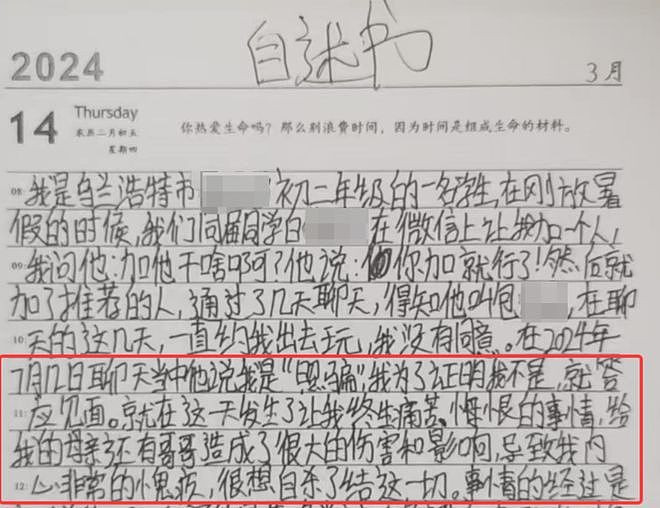 自述书
2024
3月
14 Thursday
农历二月初五
星期四
你热爱生命吗？那么别浪费时间，因为时间是组成生命的材料。
08: 我是乌兰浩特市 初二年级的一名学生,在刚放暑
假的时候,我们同届同学白 在微信上让我加一个人,
09: 我问他:加他干啥啊?他说:你加就行了!然后就
加了推荐的人,通过了几天聊天,得知他叫包 ,在聊
10: 天的这几天,一直约我出去玩,我没有同意。在2024年
7月12日聊天当中他说我是“照骗”我为了证明我不是,就答
11: 应见面。就在这一天发生了让我终生痛苦、悔恨的事情,给
我的母亲还有哥哥造成了很大的伤害和影响,导致我内
12: 心非常的愧疚,很想自杀了结这一切。事情的经过是